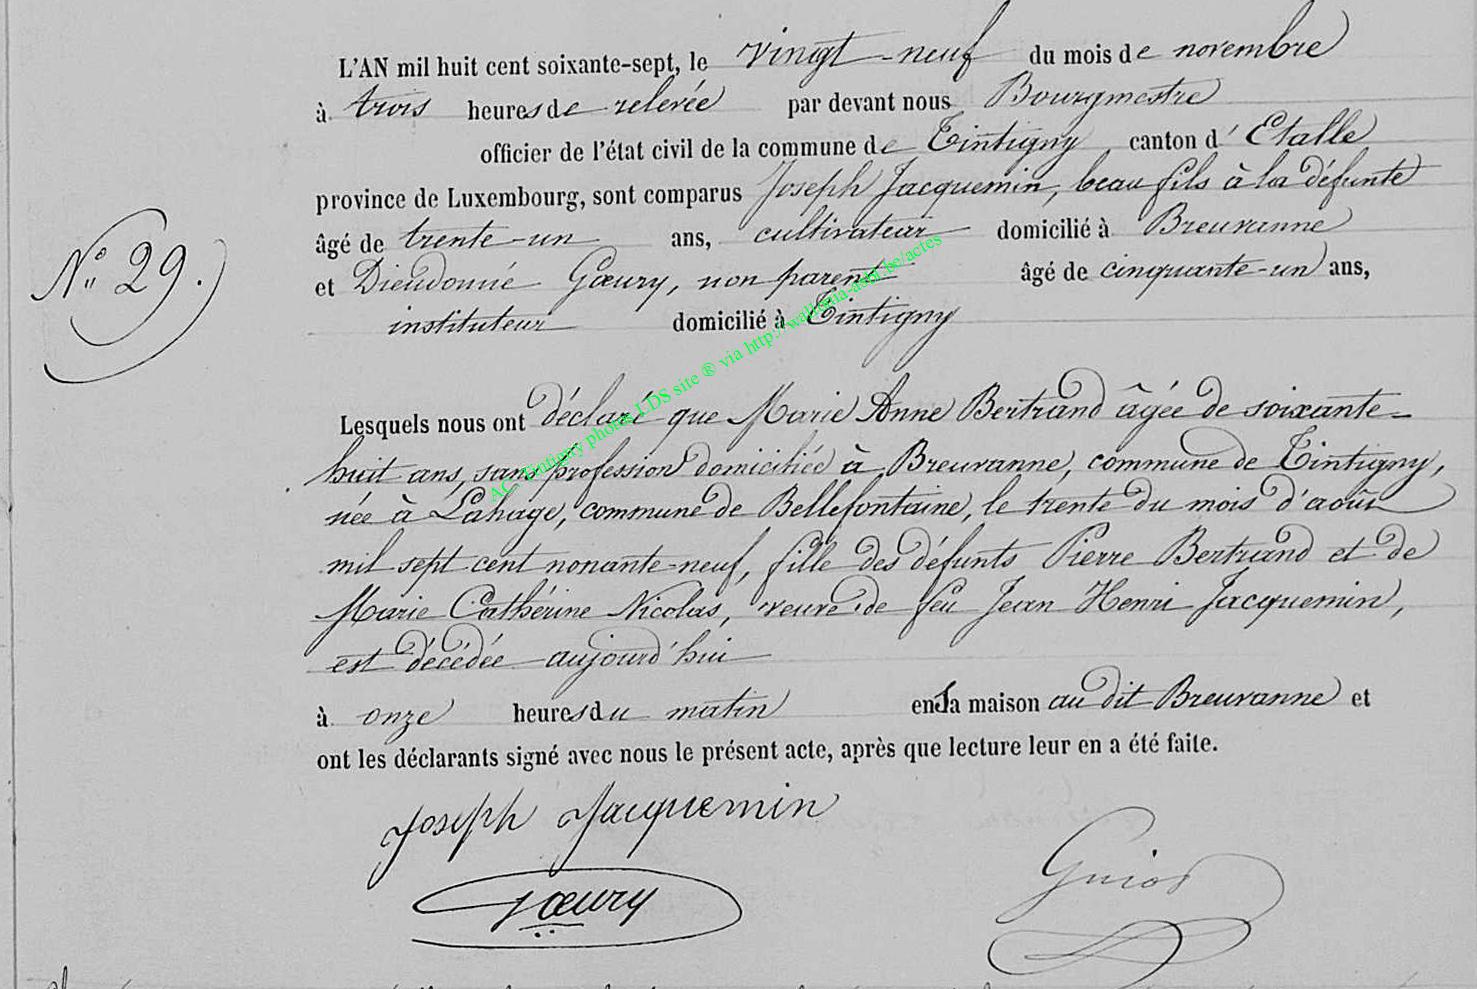 L'AN mil huit cent soixante-sept, le vingt-neuf du mois de novembre
à trois heures de relevée par devant nous Bourgmestre
officier de l'état civil de la commune de Tintigny, canton d'Etalle
province de Luxembourg, sont comparus Joseph Jacquemin, beau fils à la défunte
âgé de trente-un ans, cultivateur domicilié à Breuvanne
et Dieudonné Gœury, non parent âgé de cinquante-un ans,
instituteur domicilié à Tintigny
N° 29.
Lesquels nous ont déclaré que Marie Anne Bertrand âgée de soixante-
huit ans, sans profession domiciliée à Breuvanne, commune de Tintigny,
née à Lahage, commune de Bellefontaine, le trente du mois d'août
mil sept cent nonante-neuf, fille des défunts Pierre Bertrand et de
Marie Cathérine Nicolas, veuve de feu Jean Henri Jacquemin,
est décédée aujourd'hui
à onze heures du matin en sa maison au dit Breuvanne et
ont les déclarants signé avec nous le présent acte, après que lecture leur en a été faite.
Joseph Jacquemin
Gœury
Guiot
AC Tintigny photos LDS site ® via http://wallonia-asbl.be/actes